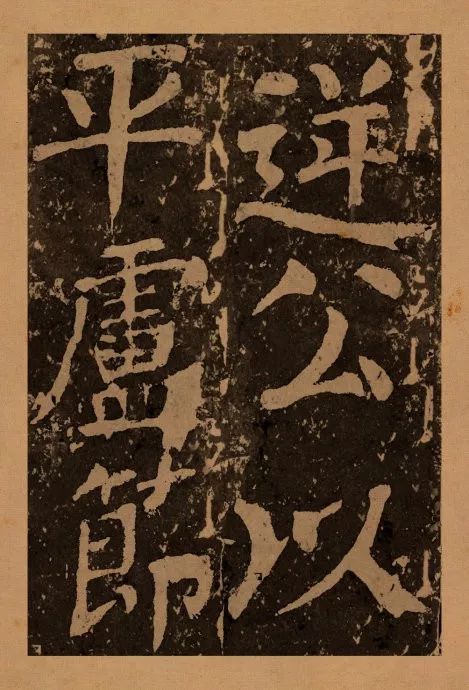 逆公以
平盧節